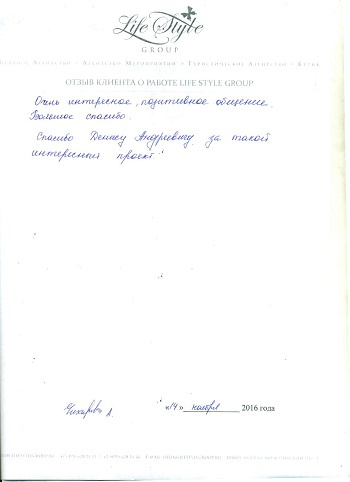 Life Style
GROUP
Агентство • Агентство Мероприятий • Туристическое Агентство •
ОТЗЫВ КЛИЕНТА О РАБОТЕ LIFE STYLE GROUP
Очень интересное, позитивное общение.
Большое спасибо.
Спасибо Денису Андреевичу за такой
интересный проект!
«14» ноября 2016 года